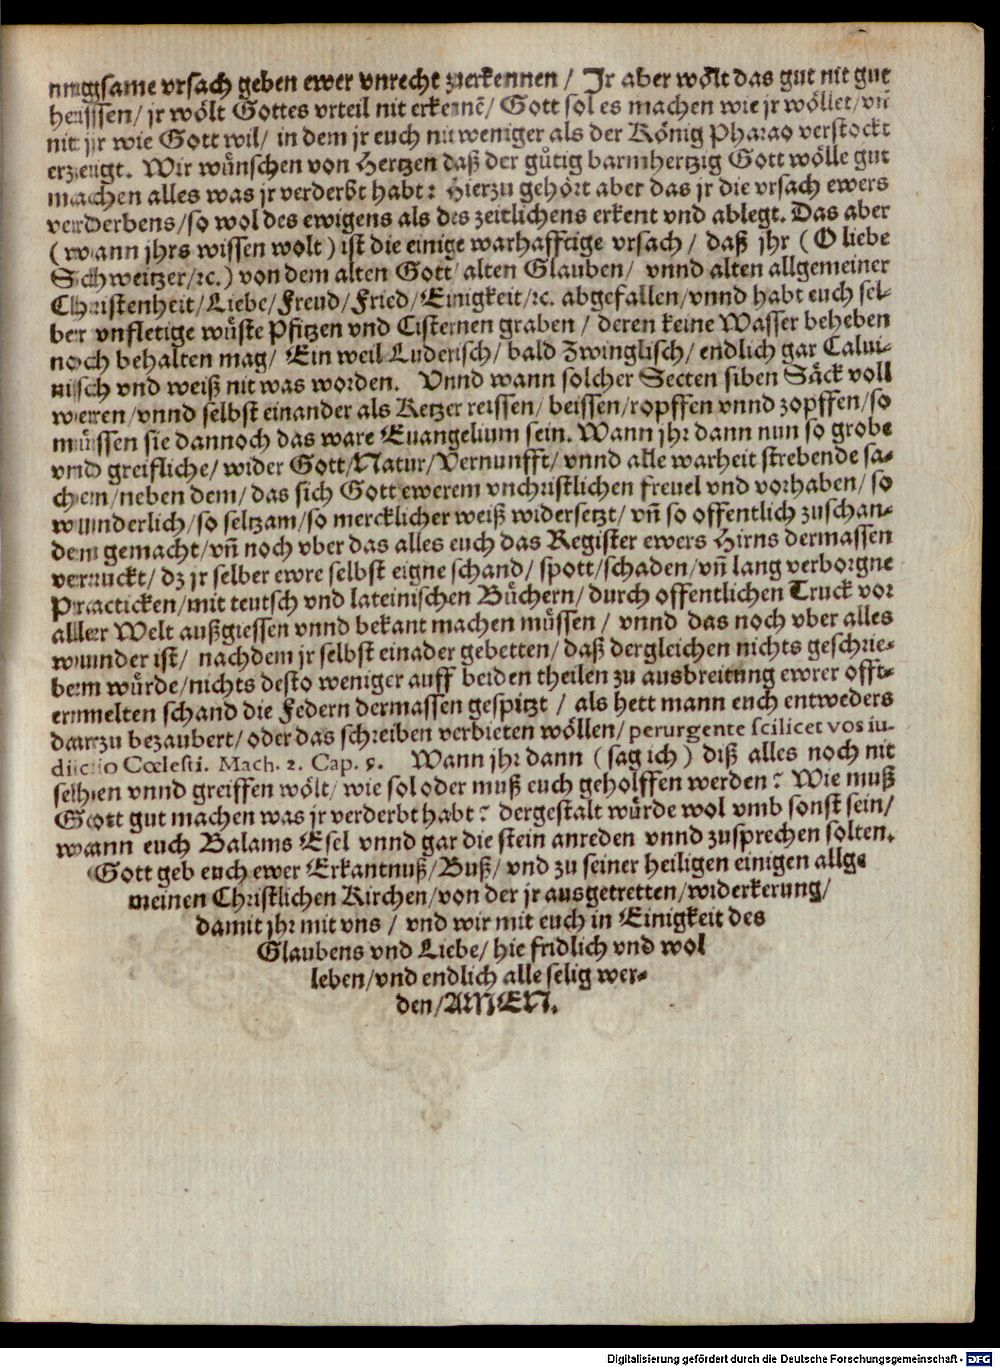 nugsame vrsach geben ewer vnrecht zuerkennen / Jr aber wölt das gut nit gut
heissen / jr wölt Gottes vrteil nit erkennē / Gott sol es machen wie jr wöllet / vñ
nit jr wie Gott wil / in dem jr euch nit weniger als der König Pharao verstockt
erzeugt. Wir wünschen von Hertzen daß der gůtig barmhertzig Gott wölle gut
machen alles was jr verderbt habt : Hierzu gehört aber das jr die vrsach ewers
verderbens / so wol des ewigens als des zeitlichens erkent vnd ablegt. Das aber
( wann jhrs wissen wolt ) ist die einige warhafftige vrsach / daß jhr ( O liebe
Schweitzer / ꝛc. ) von dem alten Gott / alten Glauben / vnnd alten allgemeiner
Christenheit / Liebe / Freud / Fried / Einigkeit / ꝛc. abgefallen / vnnd habt euch sel-
ber vnfletige wüste Pfitzen vnd Cisternen graben / deren keine Wasser beheben
noch behalten mag / Ein weil Luderisch / bald Zwinglisch / endlich gar Calui-
nisch vnd weiß nit was worden. Vnnd wann solcher Secten siben Säck voll
weren / vnnd selbst einander als Ketzer reissen / beissen / ropffen vnnd zopffen / so
müssen sie dannoch das ware Euangelium sein. Wann jhr dann nun so grobe
vnd greifliche / wider Gott / Natur / Vernunfft / vnnd alle warheit strebende sa-
chen / neben dem / das sich Gott ewerem vnchristlichen freuel vnd vorhaben / so
wunderlich / so seltzam / so mercklicher weiß widersetzt / vñ so offentlich zuschan-
den gemacht / vñ noch vber das alles euch das Register ewers Hirns dermassen
verruckt / dz jr selber ewre selbst eigne schand / spott / schaden / vñ lang verborgne
Practicken / mit teutsch vnd lateinischen Büchern / durch offentlichen Truck vor
aller Welt außgiessen vnnd bekant machen müssen / vnnd das noch vber alles
wunder ist / nachdem jr selbst einader gebetten / daß dergleichen nichts geschrie-
ben würde / nichts desto weniger auff beiden theilen zu ausbreitung ewrer offt-
ermelten schand die Federn dermassen gespitzt / als hett mann euch entweders
darzu bezaubert / oder das schreiben verbieten wöllen / perurgente scilicet vos iu-
dicio Cœlesti. Mach. 2. Cap. 5. Wann jhr dann ( sag ich ) diß alles noch nit
sehen vnnd greiffen wölt / wie sol oder muß euch geholffen werden? Wie muß
Gott gut machen was jr verderbt habt? dergestalt würde wol vmb sonst sein /
wann euch Balams Esel vnnd gar die stein anreden vnnd zusprechen solten.
Gott geb euch ewer Erkantnuß / Buß / vnd zu seiner heiligen einigen allge
meinen Christlichen Kirchen / von der jr ausgetretten / widerkerung /
damit jhr mit vns / vnd wir mit euch in Einigkeit des
Glaubens vnd Liebe / hie fridlich vnd wol
leben / vnd endlich alle selig wer-
den / AMEN.
Digitalisierung gefördert durch die Deutsche Forschungsgemeinschaft - DFG